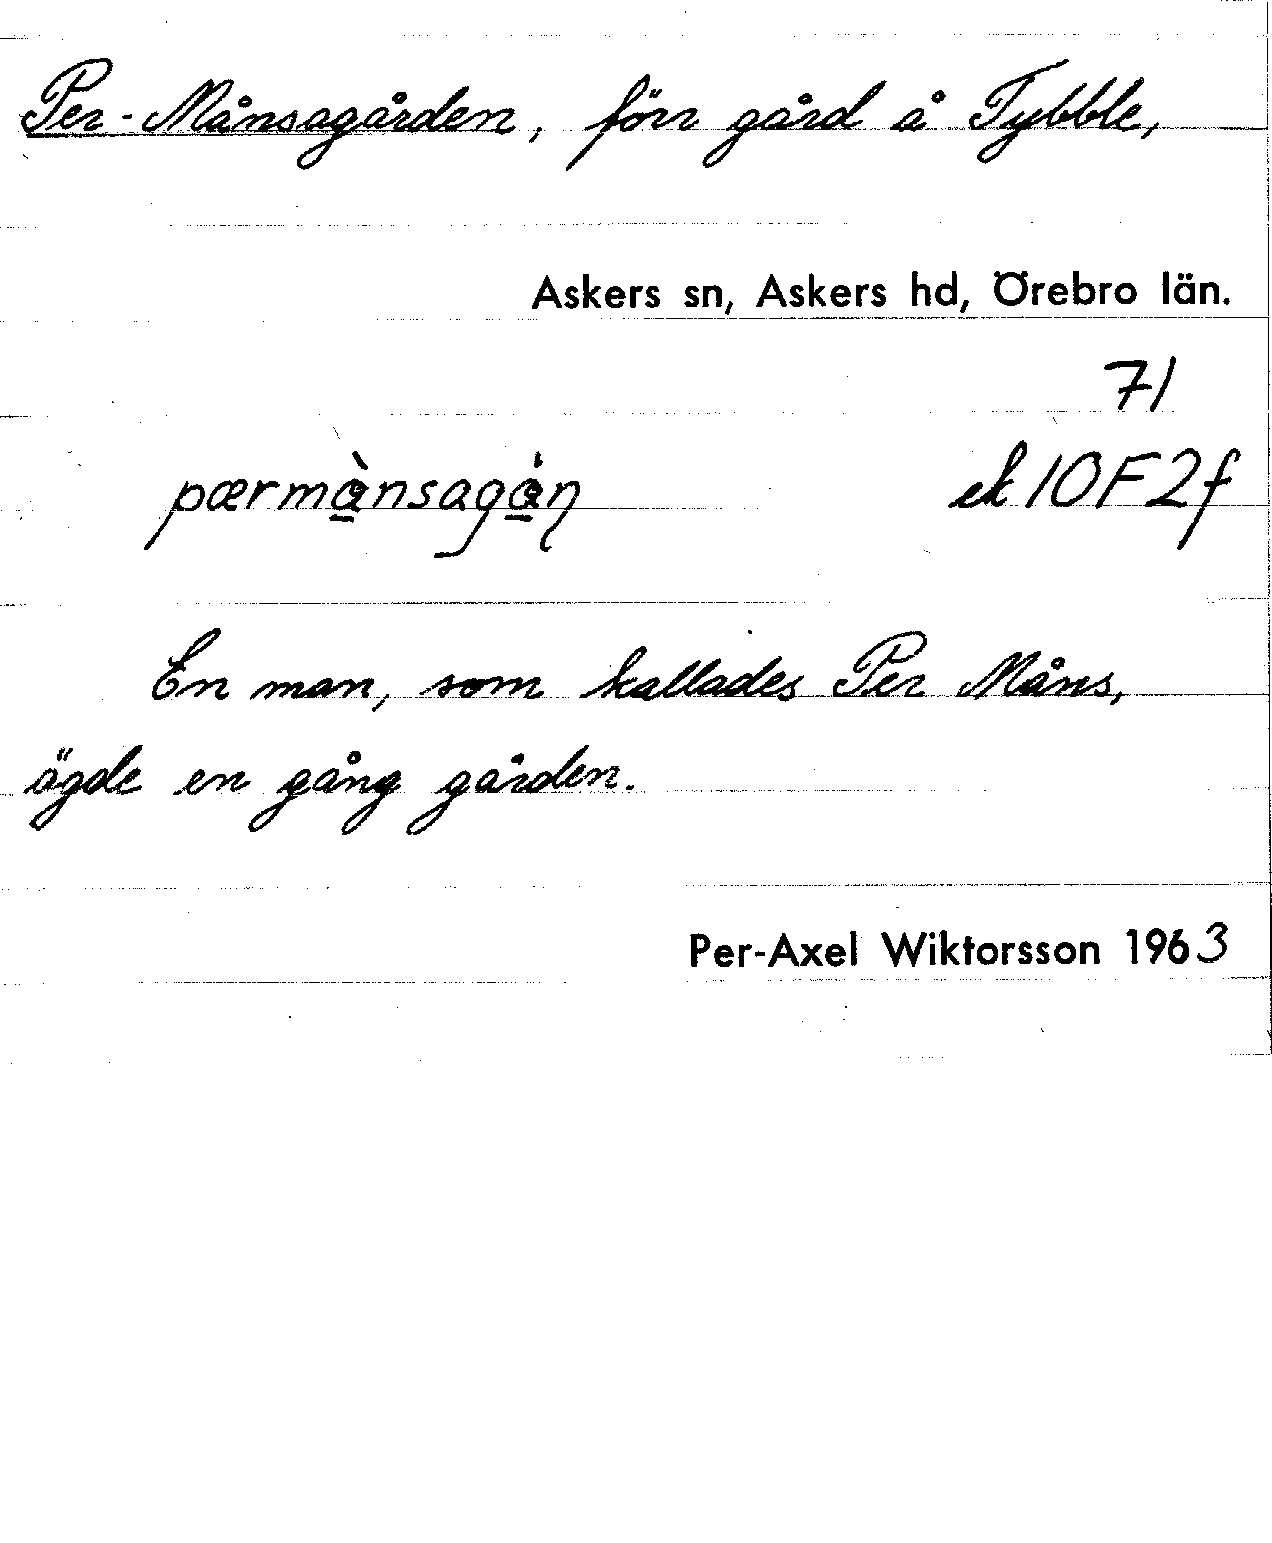 Per-Månsagården, förr gård å Tybble,
Askers sn, Askers hd, Örebro län.
71
pærmå̀nsagå̇ṇ ek 10F2f
En man, som kallades Per Måns,
ägde en gång gården.
Per-Axel Wiktorsson 1963